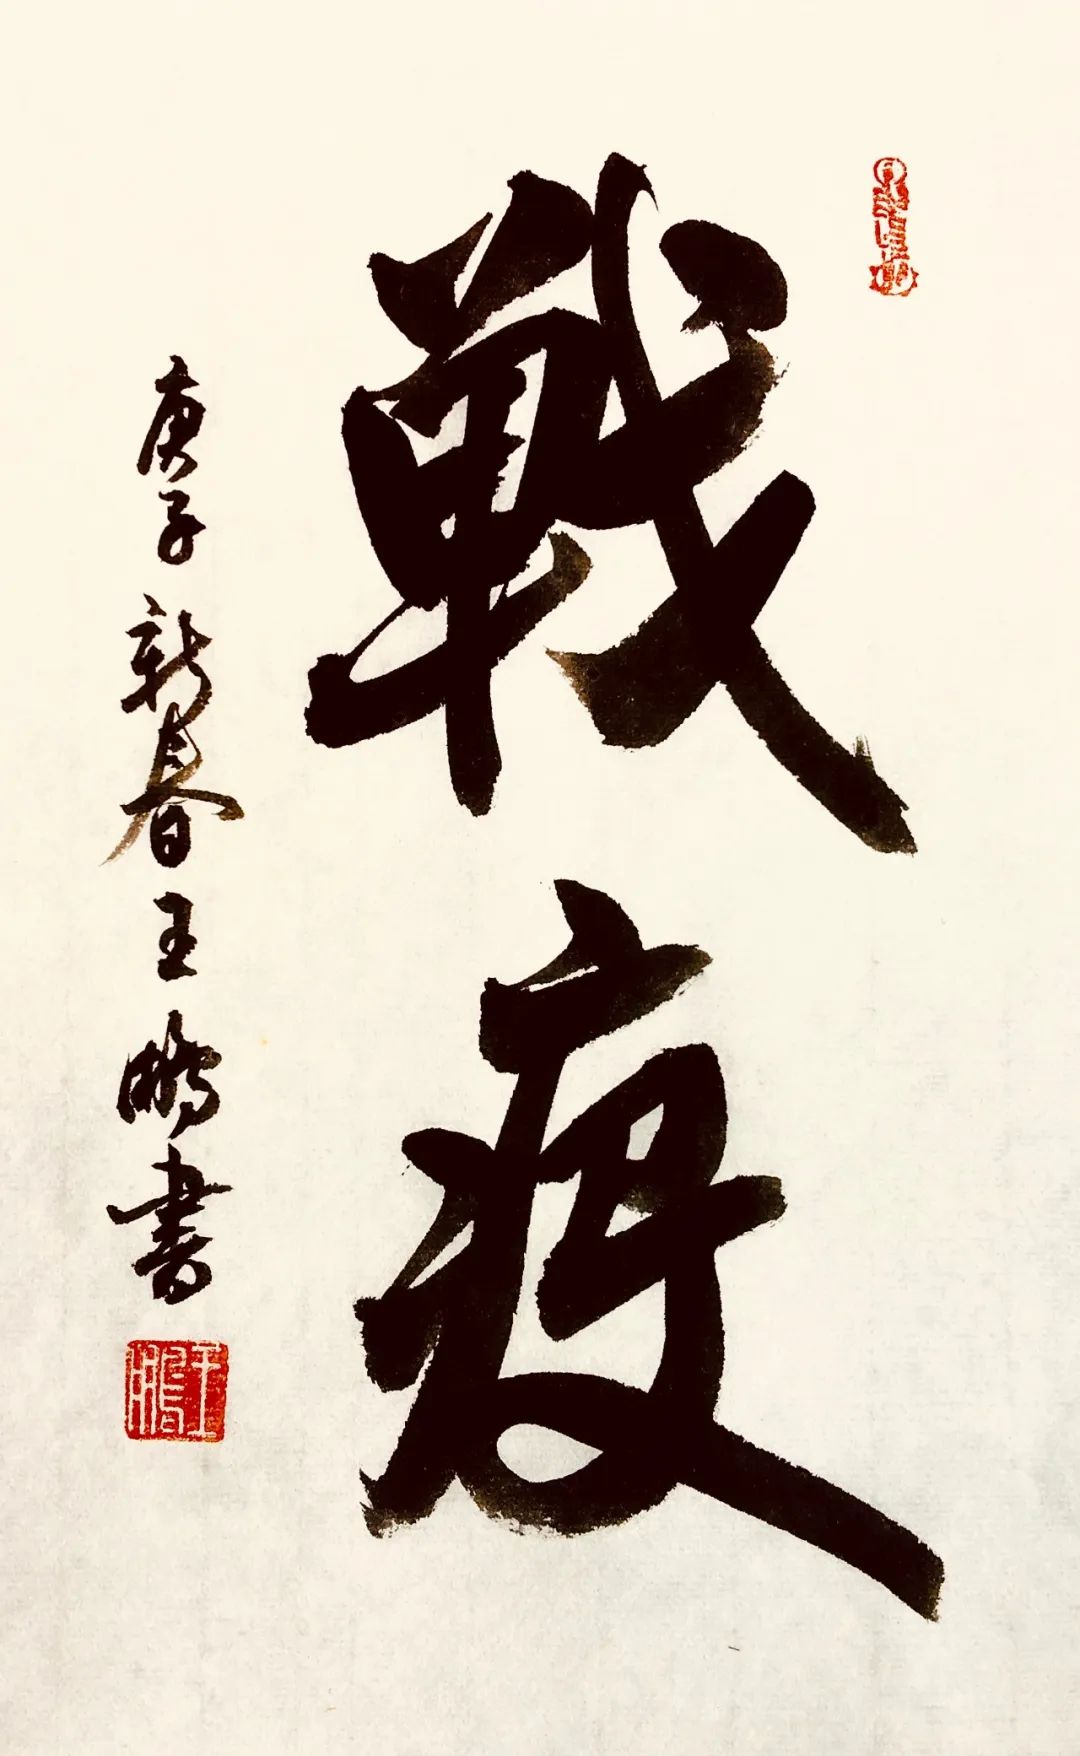 戰疫
庚子新春王鹏書
王鹏